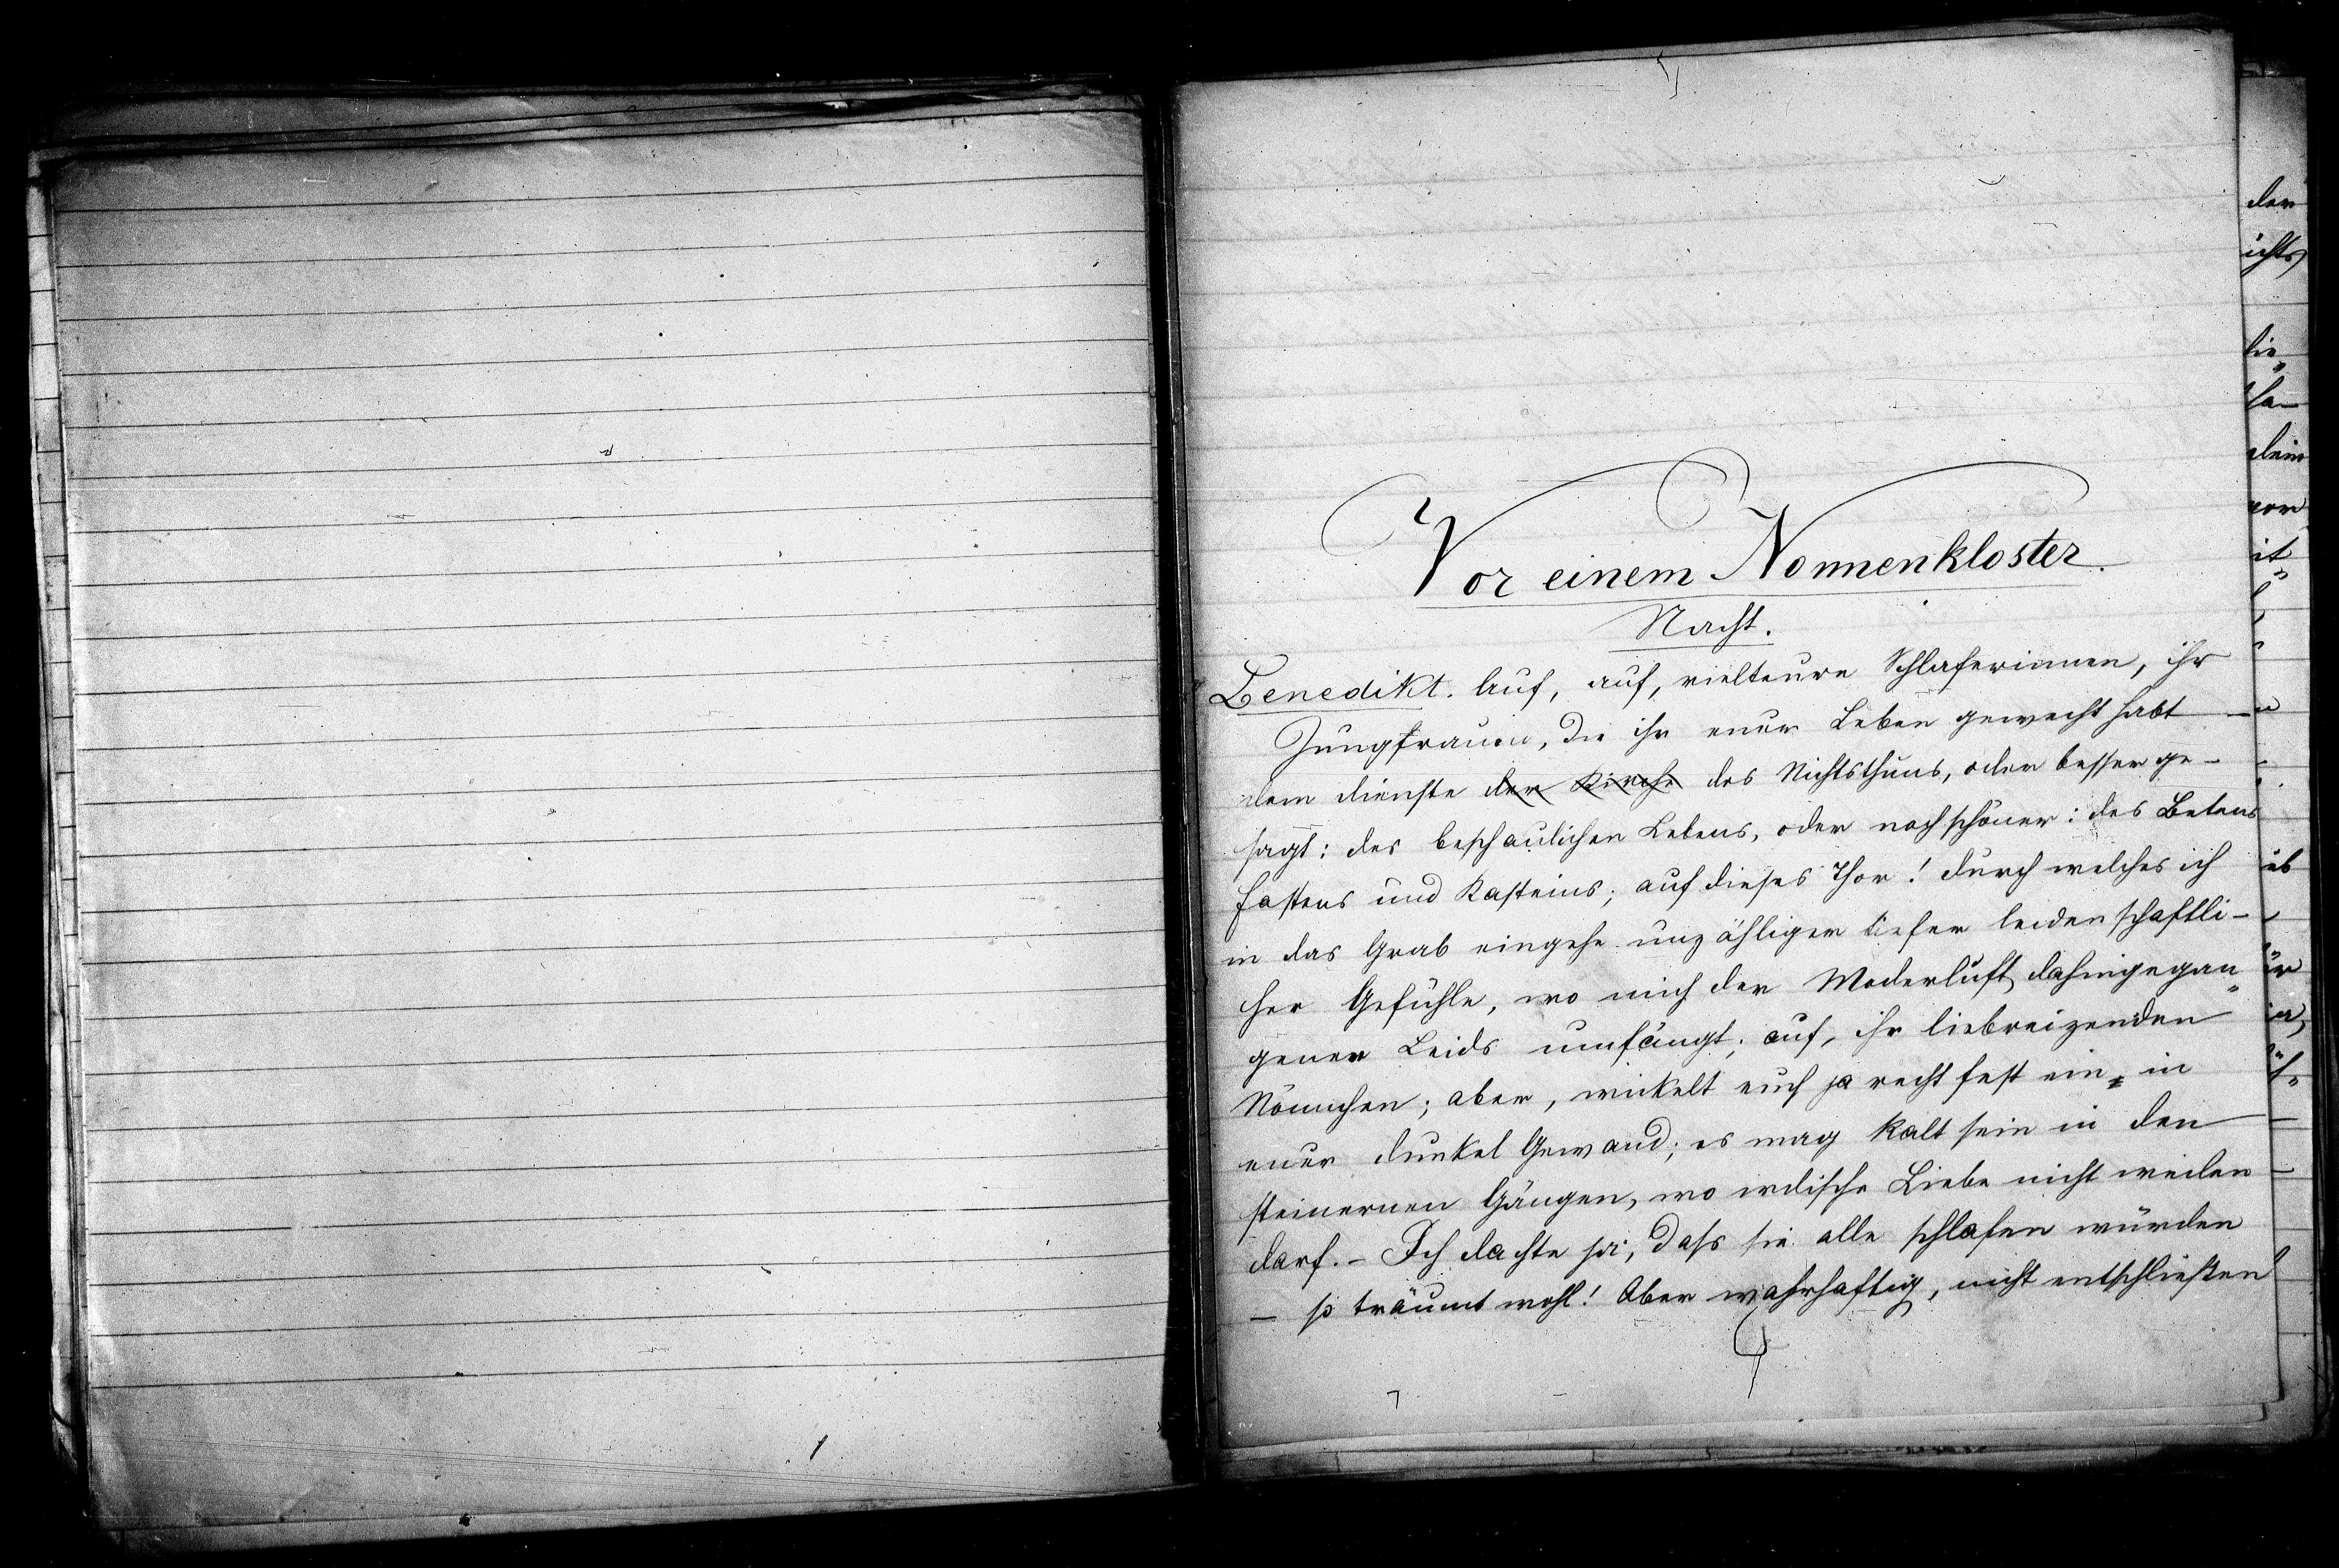 Vor einem Nonnenkloster.
Nacht.
Benedikt. Auf, auf, vielteure Schlaferinnen, ihr
Jungfrauen, die ihr euer Leben geweiht habt
dem Dienste der Kirche des Nichtsthuns, oder besser ge-
sagt: des beschaulichen Lebens, oder noch schöner: des Betens
Fastens und Kasteins; auf dieses Thor! durch welches ich
in das Grab eingehe unzähliger tiefer leidenschaftli-
cher Gefühle, wo mich der Moderluft dahingegan-
genen Leids umfängt; auf, ihr liebreizenden
Nönnchen; aber, wickelt euch ja recht fest ein in
euer dunkel Gewand; es mag kalt sein in den
steinernen Gängen, wo irdische Liebe nicht weilen
darf. - Ich dachte ja, dass sie alle schlafen würden
- so träumt wohl! Aber wahrhaftig, nicht entschließen
der
ichts
lie-
dein
vor
it-